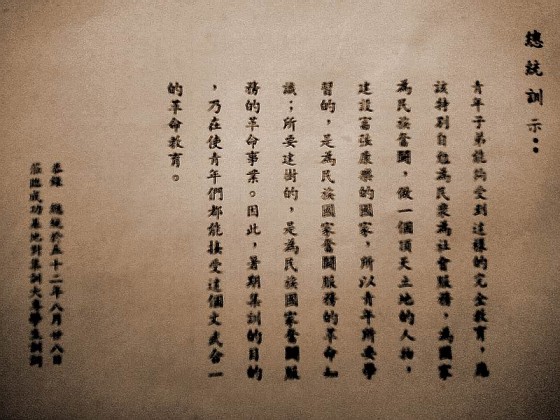 總統訓示：
青年子弟能夠受到這樣的完全教育，應
該特別自勉為民眾為社會服務，為國家
為民族奮鬪，做一個頂天立地的人物，
建設富強康樂的國家，所以青年所要學
習的，是為民族國家奮鬪服務的革命知
識；所要建樹的，是為民族國家奮鬪服
務的革命事業。因此，暑期集訓的目的
，乃在使青年們都能接受這個文武合一
的革命教育。
恭錄 總統於五十二年八月廿八日
蒞臨成功基地對集訓大專學生訓詞